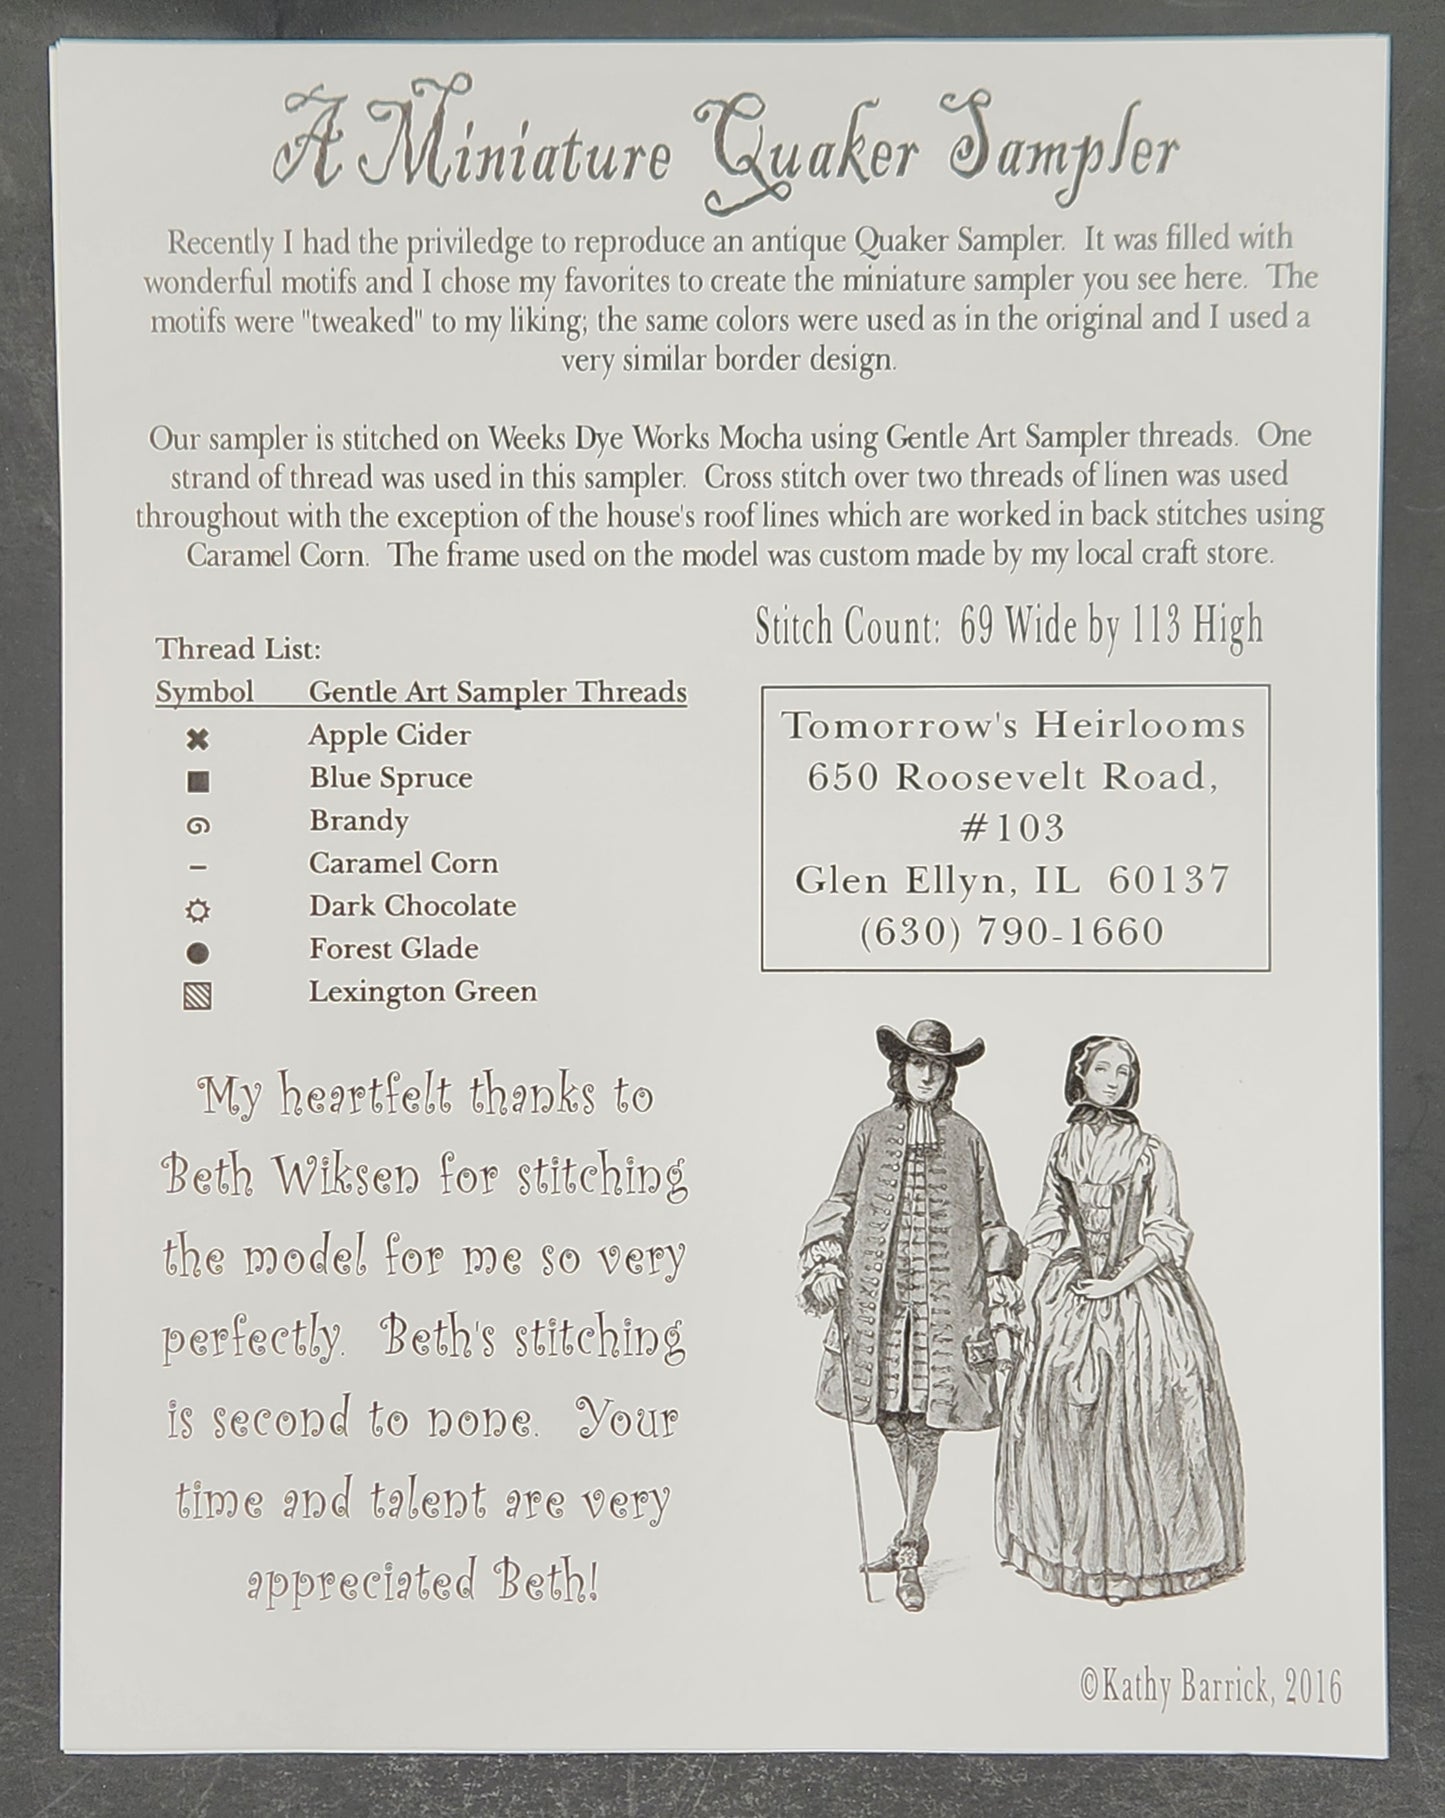 A Miniature Quaker Sampler
Recently I had the priviledge to reproduce an antique Quaker Sampler.  It was filled with
wonderful motifs and I chose my favorites to create the miniature sampler you see here.  The
motifs were "tweaked" to my liking; the same colors were used as in the original and I used a
very similar border design.
Our sampler is stitched on Weeks Dye Works Mocha using Gentle Art Sampler threads.  One
strand of thread was used in this sampler.  Cross stitch over two threads of linen was used
throughout with the exception of the house's roof lines which are worked in back stitches using
Caramel Corn.  The frame used on the model was custom made by my local craft store.
Stitch Count:  69 Wide by 113 High
Thread List:
Symbol Gentle Art Sampler Threads
Apple Cider
Blue Spruce
Brandy
Caramel Corn
Dark Chocolate
Forest Glade
Lexington Green
Tomorrow's Heirlooms
650 Roosevelt Road,
#103
Glen Ellyn, IL  60137
(630) 790-1660
My heartfelt thanks to
Beth Wiksen for stitching
the model for me so very
perfectly.  Beth's stitching
is second to none.  Your
time and talent are very
appreciated Beth!
©Kathy Barrick, 2016